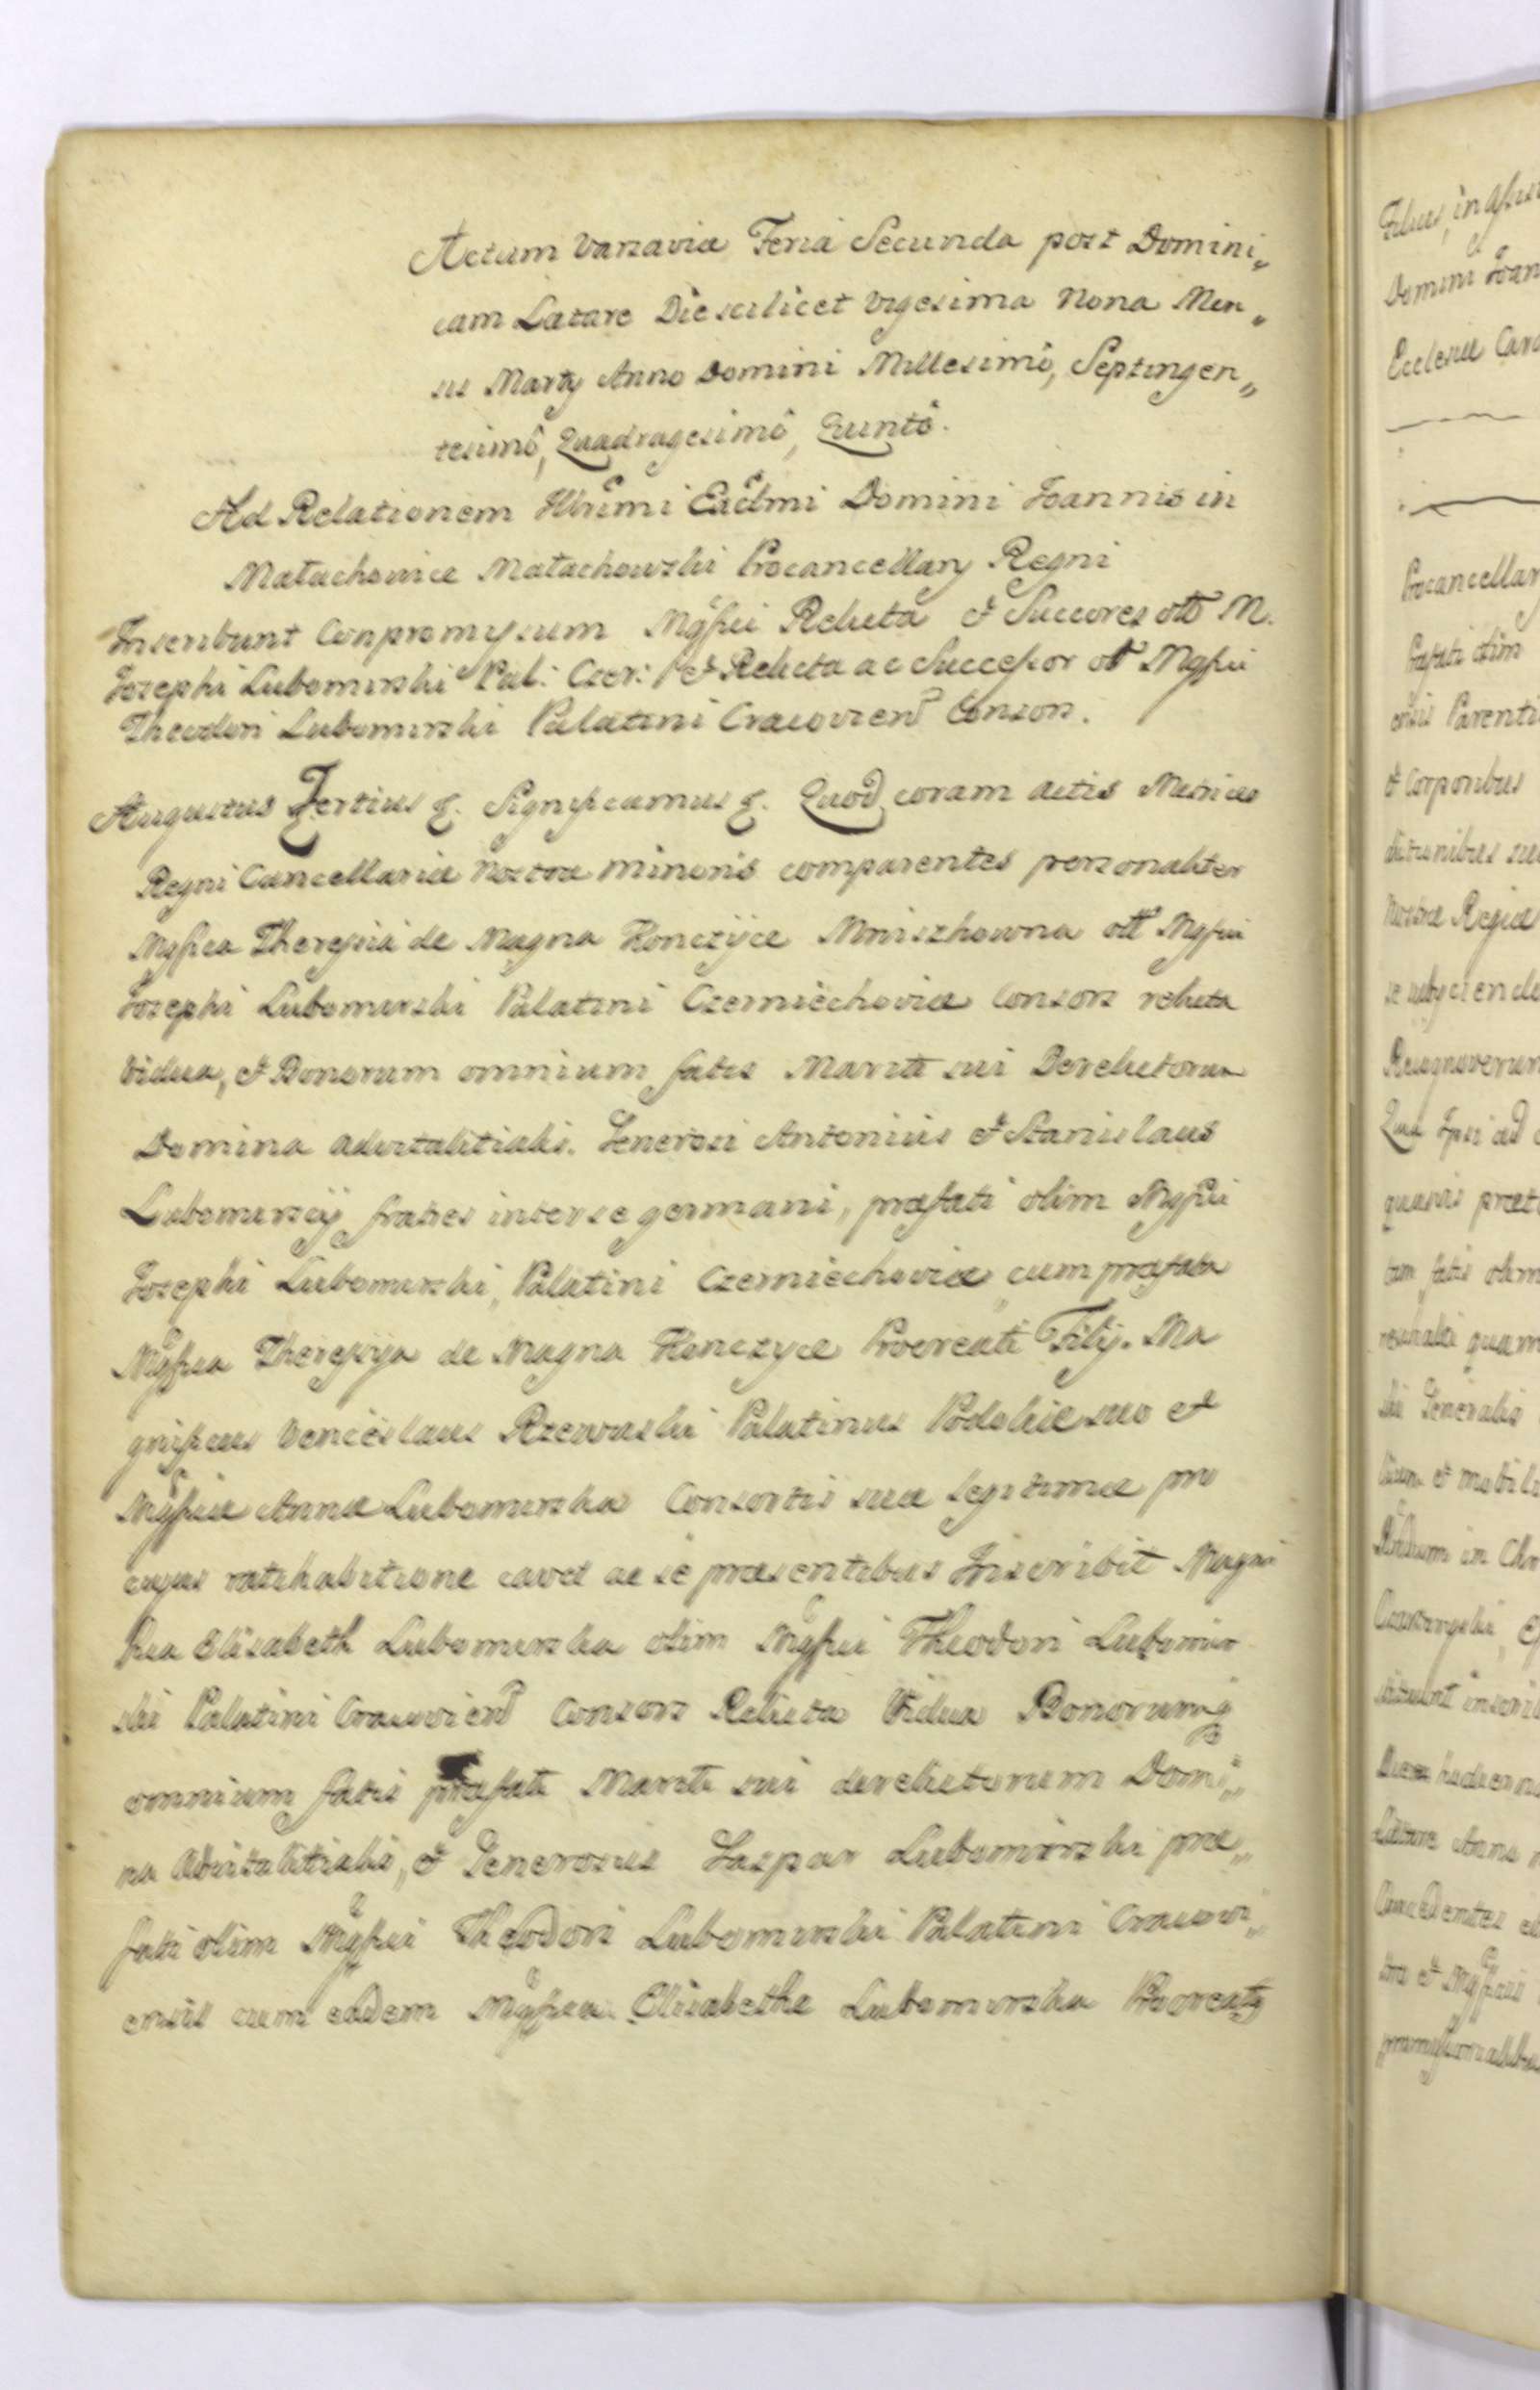 Actum Varsaviæ Feria Secunda post Domini„
cam Lætare Die scilicet Vigesima Nona Men„
sis Martij Anno Domini Millesimô, Septingen„
tesimô, Quadragesimô, Quintô.
Ad Relationem Illrimi Excllmi Domini Joannis in
Małachowice Małachowski Procancellarij Regni
Inscribunt Conpromyssum Mgfici Relicta et Succores olt M.
Josephi Lubomirski Pal: Czer: et Relicta ac Successor olt Mgfici
Theodori Lubomirski Palatini Cracovien Conson.
Augustus Tertius &. Significamus &. Quod coram actis Metrices
Regni Cancellariæ Nostræ minoris comparentes personaliter
Mgfica Theresia de Magna Konczyce Mniszkowna olt Mgfici
Josephi Lubomirski Palatini Czerniechoviæ Consors relicta
Vidua, et Bonorum omnium fatis Mariti sui Derelictorum
Domina advitalitialis. Generosi Antonius et Stanislaus
Lubomirscij fratres inter se germani, præfati olim Mgfici
Josephi Lubomirski, Palatini Czerniechoviæ, cum præfata
Mgfica Theresya de Magna Konczyce Procreati Filij. Ma
gnificus Venceslaus Rzewuski Palatinus Podoliæ suo et
Mgficæ Annæ Lubomirska Consortis suæ legitimæ pro
cujus ratihabitione cavet ac se præsentibus Inscribit Magni
fica Elisabeth Lubomirska olim Mgfici Theodori Lubomir
ski Palatini Cracovien Consors Relicta Vidua Bonorumq
omnium fatis præfati Mariti sui derelictorum Domi„
na Advitalitialis, et Generosus Gaspar Lubomirski præ„
fati olim Mgfici Theodori Lubomirski Palatini Cracovi„
ensis cum eadem Mgfica Elisabetha Lubomirska Procreatq
Filius, in
Domini Joan
Ecclesiæ
Procancellar
Præfati olim
Parenti
et Corporibus
Nostræ Regiæ
se subyciendo
Recognoverun
Quia Ipsi ad
quasvis præt
fatis olim
quam
ski Generalis
et mobili
in Chr
Czartoryski
hodierna
Lætare Anno
et Mgficis